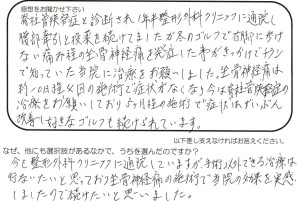 感想をお聞かせ下さい
脊柱管狭窄症と診断され1年半整形外科クリニックに通院し
腰部牽引と投薬を続けてましたが冬のゴルフで右脚に歩けない
ない痛みの坐骨神経痛を発症した事がきっかけでチラシ
で知っていた当院に治療をお願いしました。坐骨神経痛は
約1ヶ月後 回の施術で症状がなくなり今は脊柱管狭窄症の
治療をお願いしており 月程の施術で症状はずいぶん
改善し好きなゴルフも続けられています。
以下差し支えなければお答えください。
なぜ、他にも選択肢があるなかで、うちを選んだのですか？
今も整形外科クリニックに通院していますが、手術以外でできる治療は
行ないたいと思っており坐骨神経痛の施術で当院の効果を実感
しましたので続けたいと思いました。